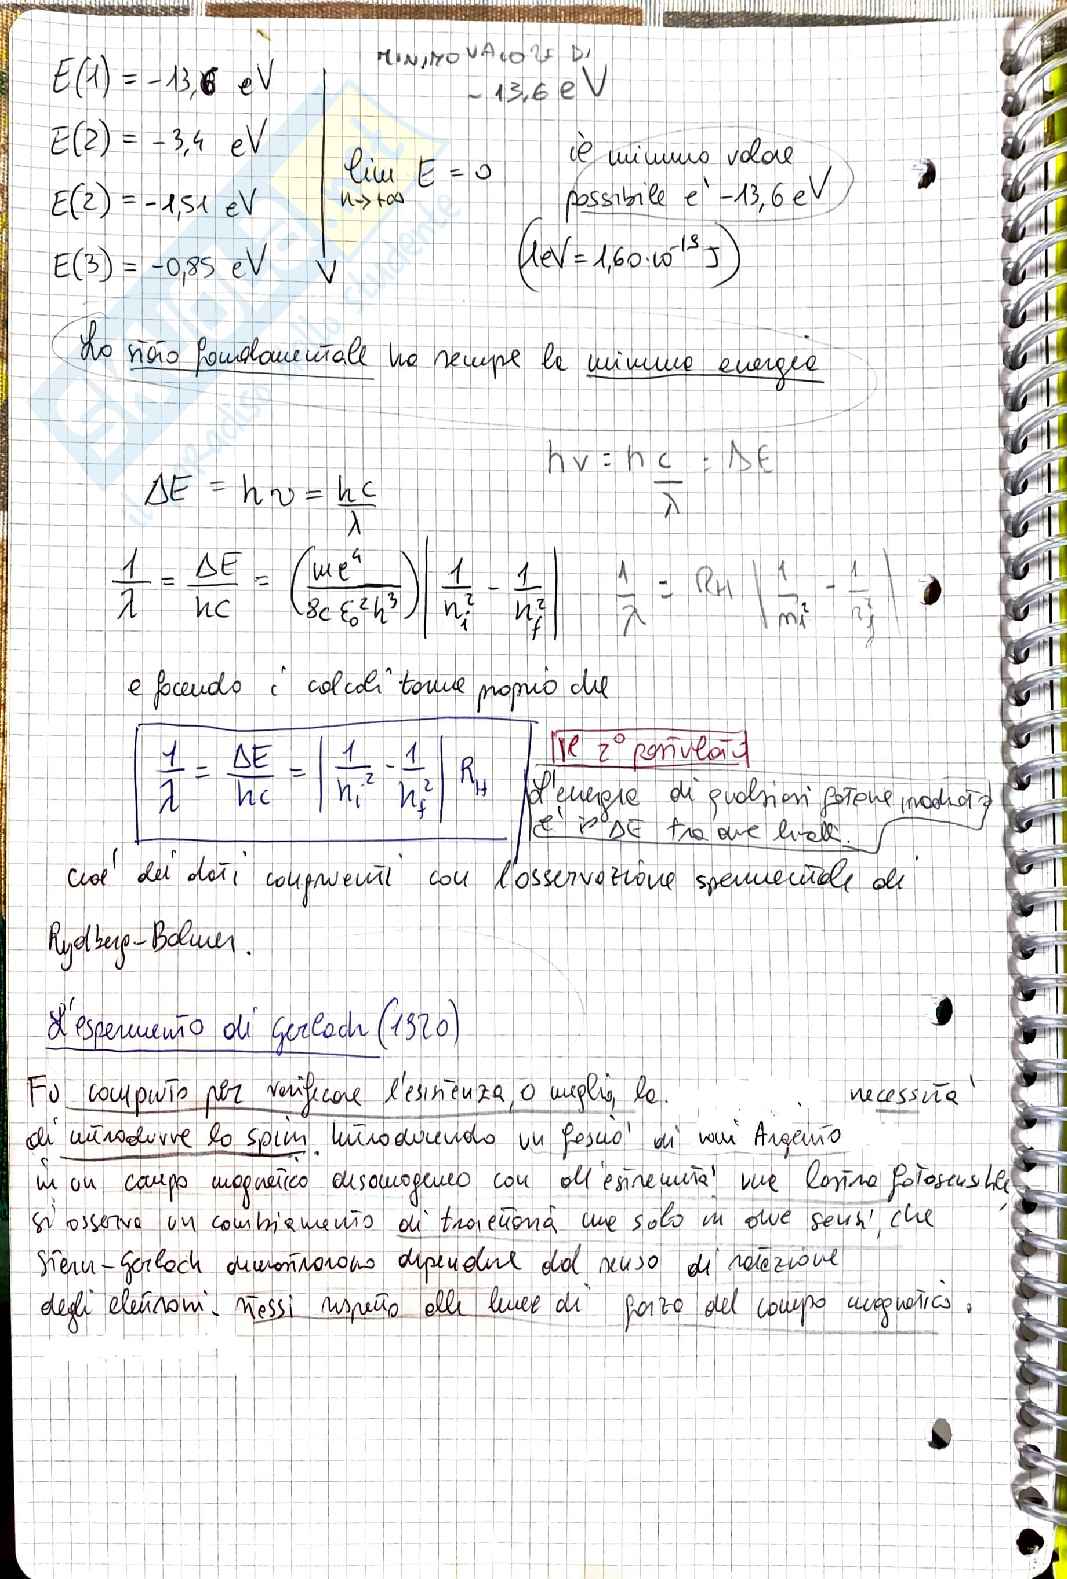 MINIMO VALORE DI
- 13,6 eV
E(1) = -13,6 eV
E(2) = -3,4 eV
E(2) = -1,51 eV
E(3) = -0,85 eV
lim E = 0
n→+∞
il minimo valore
possibile è -13,6 eV
(1eV = 1,60·10⁻¹⁹ J)
Lo stato fondamentale ha sempre la minima energia
hν = h c/λ = ΔE
ΔE = hν = hc/λ
1/λ = ΔE/hc = (me⁴/8cε₀²h³) |1/nᵢ² - 1/n_f²|
1/λ = RH |1/nᵢ² - 1/n_f²|
e facendo i calcoli torna proprio che
1/λ = ΔE/hc = |1/nᵢ² - 1/n_f²| R_H
Il 2° postulato
L'energia di qualsiasi fotone irradiato
è il ΔE tra due livelli.
cioè dei dati congruenti con l'osservazione sperimentale di
Rydberg-Balmer.
L'esperimento di Gerlach (1920)
Fu compiuto per verificare l'esistenza, o meglio, la necessità
di introdurre lo spin. Introducendo un fascio di ioni Argento
in un campo magnetico disomogeneo con all'estremità una lastra fotosensibile,
si osserva un cambiamento di traiettoria ma solo in due sensi, che
Stern-Gerlach dimostrarono dipendere dal senso di rotazione
degli elettroni stessi rispetto alle linee di forza del campo magnetico.
SKUOLA.net
il paradiso dello studente